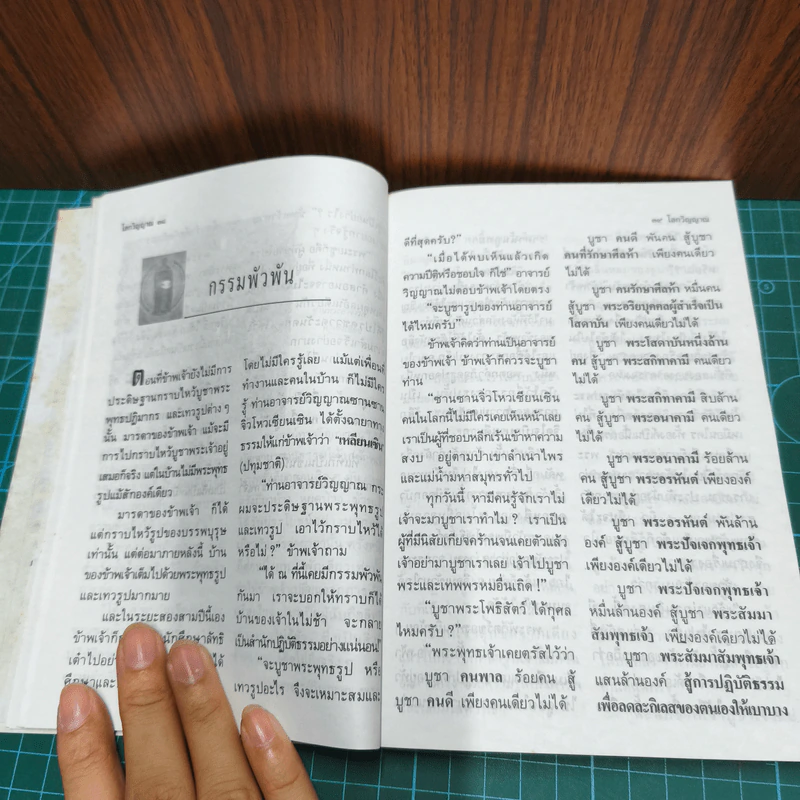 โลกวิญญาณ ๓๘
กรรมพัวพัน
ตอนที่ข้าพเจ้ายังไม่มีการ
ประดิษฐานกราบไหว้บูชาพระ
พุทธปฏิมากร และเทวรูปต่าง ๆ
นั้น มารดาของข้าพเจ้า แม้จะมี
การไปกราบไหว้บูชาพระเจ้าอยู่
เสมอก็จริง แต่ในบ้านไม่มีพระพุทธ
รูปแม้สักองค์เดียว
มารดาของข้าพเจ้า ก็ได้
แต่กราบไหว้รูปของบรรพบุรุษ
เท่านั้น แต่ต่อมาภายหลังนี้ บ้าน
ของข้าพเจ้าเต็มไปด้วยพระพุทธรูป
และเทวรูปมากมาย
และในระยะสองสามปีนี้เอง
ข้าพเจ้าก็ ศึกษาลัทธิ
เต๋าไปอย่าง ได้
ศึกษาและ
โดยไม่มีใครรู้เลย แม้แต่เพื่อนที่
ทำงานและคนในบ้าน ก็ไม่มีใคร
รู้ ท่านอาจารย์วิญญาณซานซาน
จิ่วโหวเซียนเซิน ได้ตั้งฉายาทาง
ธรรมให้แก่ข้าพเจ้าว่า "เหลียนเซิน"
(ปทุมชาติ)
"ท่านอาจารย์วิญญาณ กระ
ผมจะประดิษฐานพระพุทธรูป
และเทวรูป เอาไว้กราบไหว้ได้
หรือไม่ ?" ข้าพเจ้าถาม
"ได้ ณ ที่นี้เคยมีกรรมพัวพัน
กันมา เราจะบอกให้ทราบก็ได้
บ้านของเจ้าในไม่ช้า จะกลาย
เป็นสำนักปฏิบัติธรรมอย่างแน่นอน"
"จะบูชาพระพุทธรูป หรือ
เทวรูปอะไร จึงจะเหมาะสมและ
๓๙ โลกวิญญาณ
ดีที่สุดครับ?"
"เมื่อได้พบเห็นแล้วเกิด
ความปีติหรือชอบใจ ก็ใช่" อาจารย์
วิญญาณไม่ตอบข้าพเจ้าโดยตรง
"จะบูชารูปของท่านอาจารย์
ได้ไหมครับ"
ข้าพเจ้าคิดว่าท่านเป็นอาจารย์
ของข้าพเจ้า ข้าพเจ้าก็ควรจะบูชา
ท่าน
"ซานซานจิ่วโหวเซียนเซิน
คนในโลกนี้ไม่มีใครเคยเห็นหน้าเลย
เราเป็นผู้ที่ชอบหลีกเร้นเข้าหาความ
สงบ อยู่ตามป่าเขาลำเนาไพร
และแม่น้ำมหาสมุทรทั่วไป
ทุกวันนี้ หามีคนรู้จักเราไม่
เจ้าจะมาบูชาเราทำไม ? เราเป็น
ผู้ที่มีนิสัยเกียจคร้านจนเคยตัวแล้ว
เจ้าอย่ามาบูชาเราเลย เจ้าไปบูชา
พระและเทพพรหมอื่นเถิด !"
"บูชาพระโพธิสัตว์ ได้กุศล
ไหมครับ ?"
"พระพุทธเจ้าเคยตรัสไว้ว่า
บูชา คนพาล ร้อยคน สู้
บูชา คนดี เพียงคนเดียวไม่ได้
บูชา คนดี พันคน สู้บูชา
คนที่รักษาศีลห้า เพียงคนเดียว
ไม่ได้
บูชา คนรักษาศีลห้า หมื่นคน
สู้บูชา พระอริยบุคคลผู้สำเร็จเป็น
โสดาบัน เพียงคนเดียวไม่ได้
บูชา พระโสดาบันหนึ่งล้าน
คน สู้บูชา พระสกิทาคามี คนเดียว
ไม่ได้
บูชา พระสกิทาคามี สิบล้าน
คน สู้บูชา พระอนาคามี คนเดียว
ไม่ได้
บูชา พระอนาคามี ร้อยล้าน
คน สู้บูชา พระอรหันต์ เพียงองค์
เดียวไม่ได้
บูชา พระอรหันต์ พันล้าน
องค์ สู้บูชา พระปัจเจกพุทธเจ้า
เพียงองค์เดียวไม่ได้
บูชา พระปัจเจกพุทธเจ้า
หมื่นล้านองค์ สู้บูชา พระสัมมา
สัมพุทธเจ้า เพียงองค์เดียวไม่ได้
บูชา พระสัมมาสัมพุทธเจ้า
แสนล้านองค์ สู้การปฏิบัติธรรม
เพื่อลดละกิเลสของตนเองให้เบาบาง